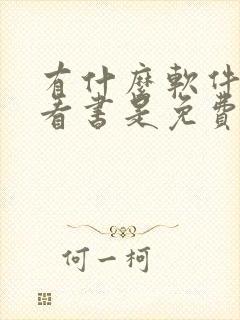 有什麽軟件
看書是免費
何一柯